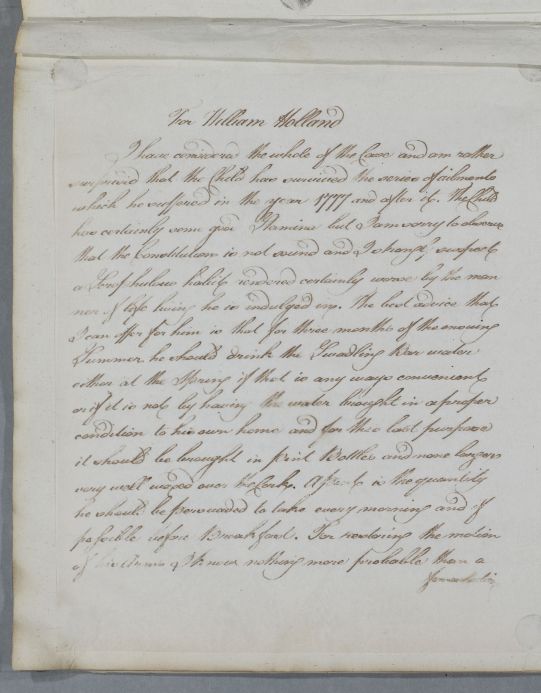 For William Holland
I have considered the whole of the Case and am rather
surprised that the Child has survived the series of ailments
which he suffered in the year 1777 and after it. The Child
has certainly some good Stamina but I am sorry to observe
that the Constitution is not sound and I strongly suspect
a Scrofulous habit rendered certainly worse by the man
ner of life living he is indulged in. The best advice that
I can offer for him is that for three months of the ensuing
Summer he should drink the Swadling Bar water
either at the Spring if that is any ways convenient
or if it is not by having the water brought in a proper
condition to his own home and for this last purpose
it should be brought in pint Bottles and none larger
very well waxed over the Corks. A pint is the quantity
he should be perswaded to take every morning and if
possible before Breakfast. For restoring the motion
of his Arms I know nothing more probable than a